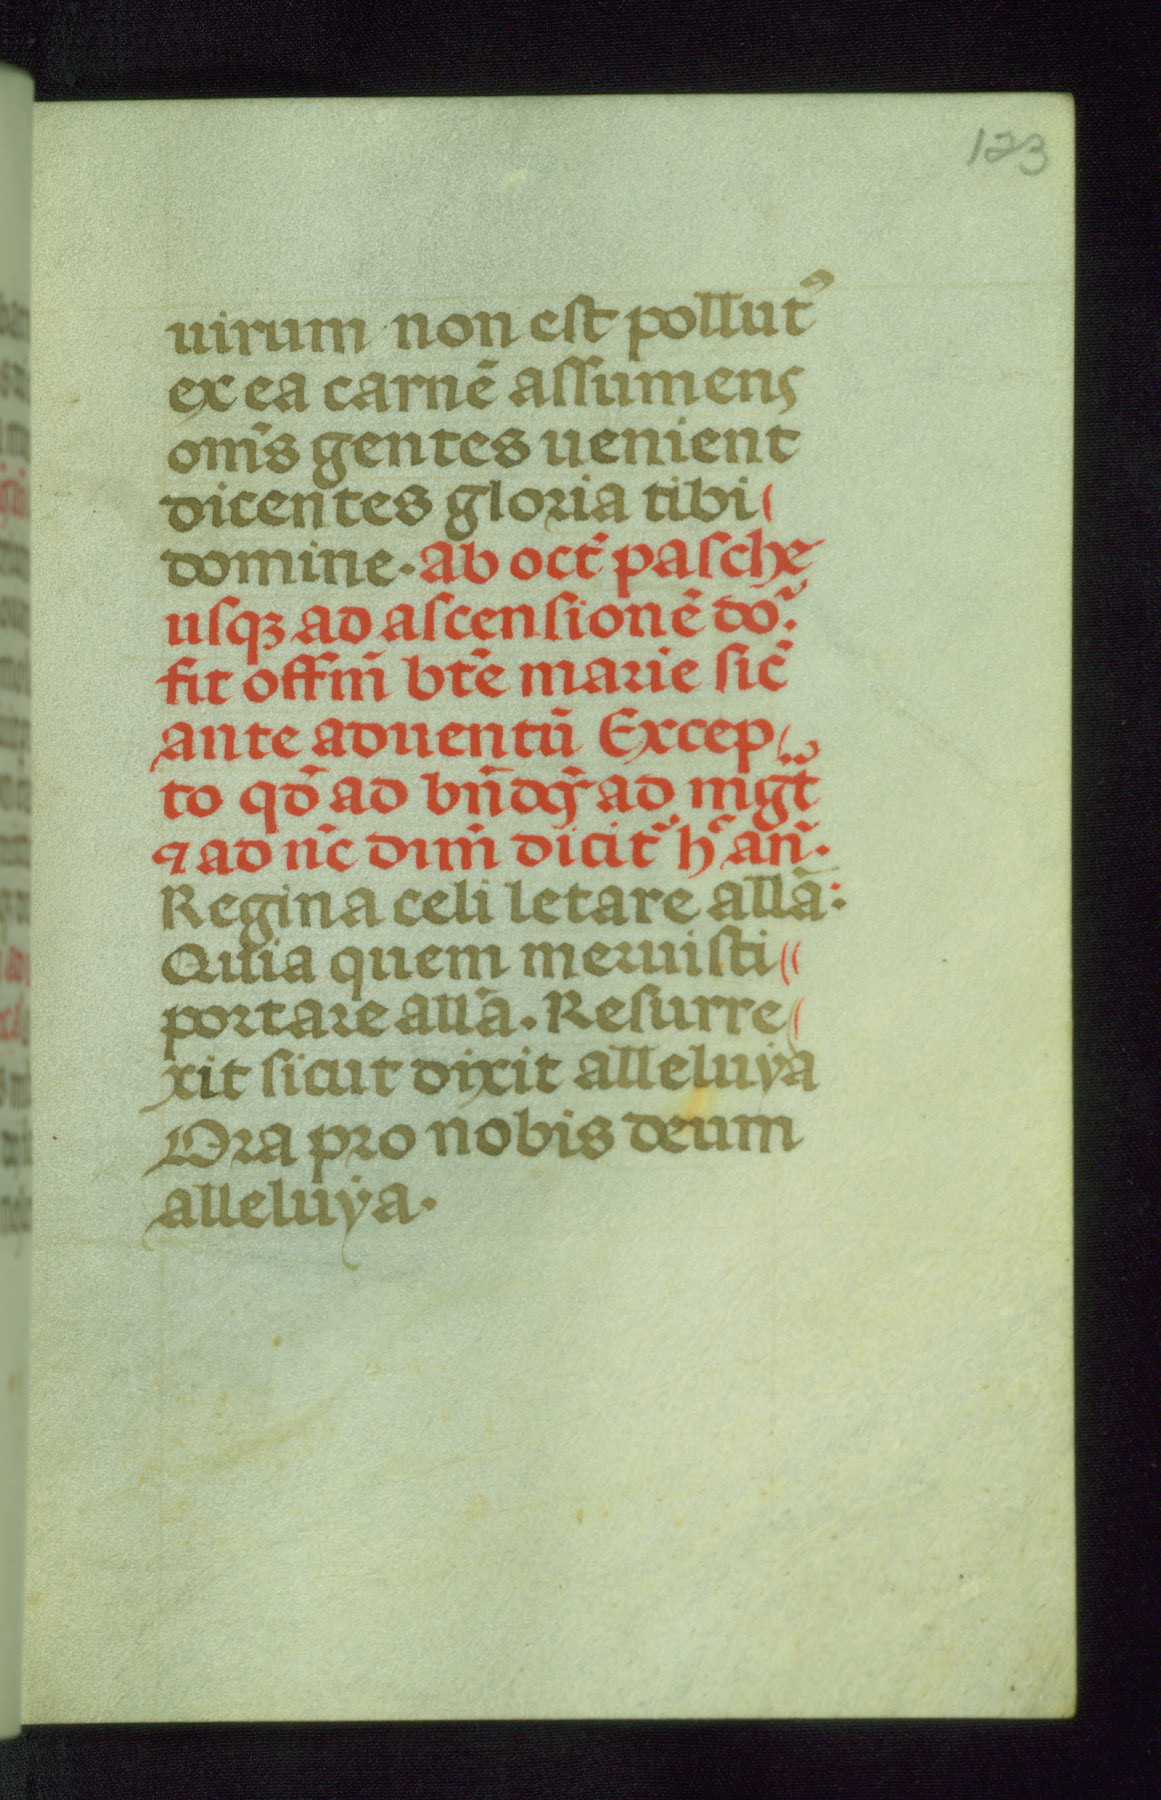 123
uirum non est pollut᾽
ex ea carnē assumens
om̄s gentes uenient
dicentes gloria tibi
domine. Ab oct̄ pasche
usqꝫ ad ascensionē do᷑.
fit offm̄ bt̄e marie sic̄
ante aduentū Excep
to qd̄ ad bn̄dꝯ ad mḡt
⁊ ad nc̄ dim̄ dicit᷑ h᷑ an̄.
Regina celi letare allā:
Quia quem meruisti
portare allā. Resurre
xit sicut dixit alleluẏa
Ora pro nobis deum
alleluẏa.